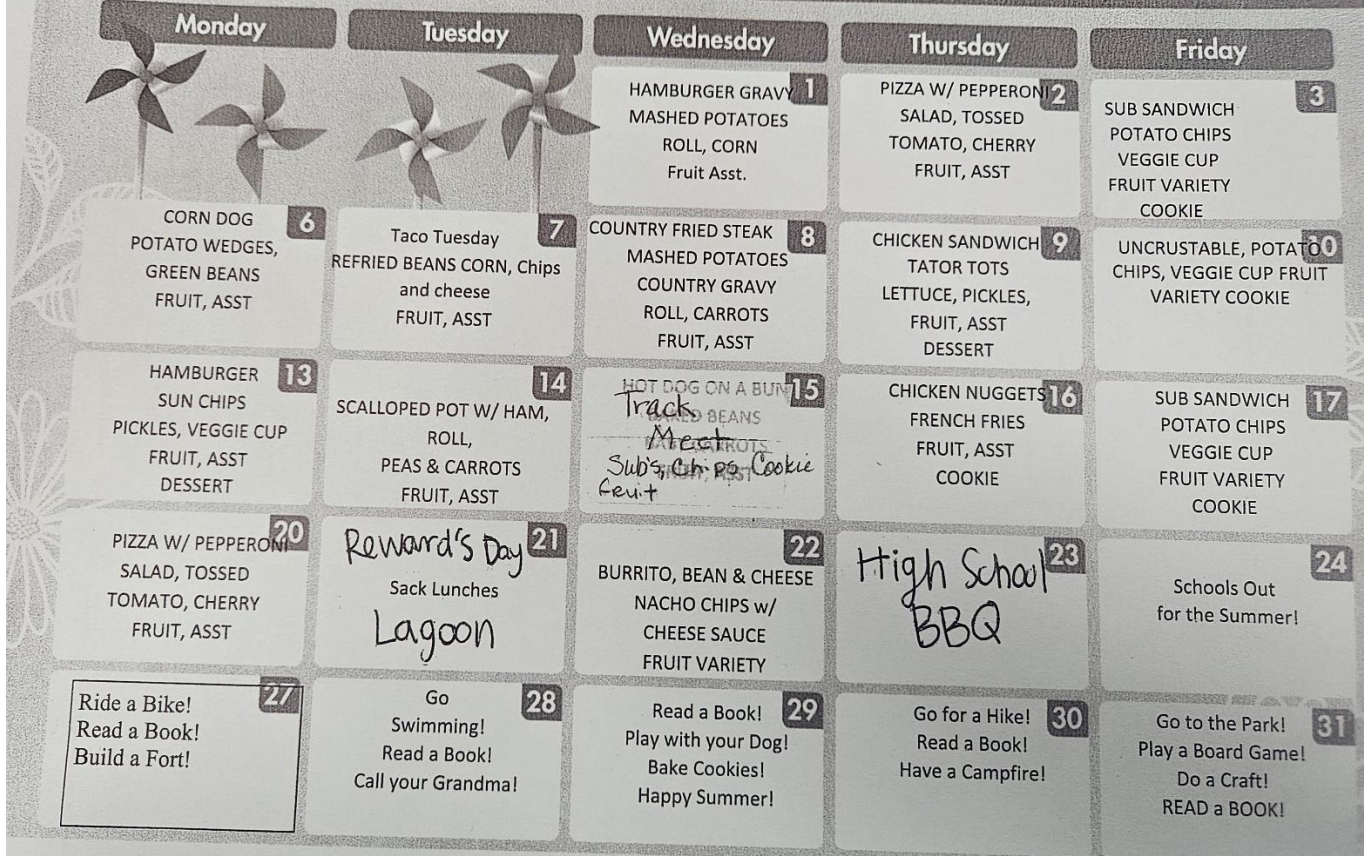 Monday
Tuesday
Wednesday
Thursday
Friday
1
HAMBURGER GRAVY
MASHED POTATOES
ROLL, CORN
Fruit Asst.
2
PIZZA W/ PEPPERONI
SALAD, TOSSED
TOMATO, CHERRY
FRUIT, ASST
3
SUB SANDWICH
POTATO CHIPS
VEGGIE CUP
FRUIT VARIETY
COOKIE
6
CORN DOG
POTATO WEDGES,
GREEN BEANS
FRUIT, ASST
7
Taco Tuesday
REFRIED BEANS CORN, Chips
and cheese
FRUIT, ASST
8
COUNTRY FRIED STEAK
MASHED POTATOES
COUNTRY GRAVY
ROLL, CARROTS
FRUIT, ASST
9
CHICKEN SANDWICH
TATOR TOTS
LETTUCE, PICKLES,
FRUIT, ASST
DESSERT
10
UNCRUSTABLE, POTATO
CHIPS, VEGGIE CUP FRUIT
VARIETY COOKIE
13
HAMBURGER
SUN CHIPS
PICKLES, VEGGIE CUP
FRUIT, ASST
DESSERT
14
SCALLOPED POT W/ HAM,
ROLL,
PEAS & CARROTS
FRUIT, ASST
15
HOT DOG ON A BUN
Track
BAKED BEANS
Meet
CARROTS
Sub's, Chips, Cookie
FRUIT, ASST
fruit
16
CHICKEN NUGGETS
FRENCH FRIES
FRUIT, ASST
COOKIE
17
SUB SANDWICH
POTATO CHIPS
VEGGIE CUP
FRUIT VARIETY
COOKIE
20
PIZZA W/ PEPPERONI
SALAD, TOSSED
TOMATO, CHERRY
FRUIT, ASST
21
Reward's Day
Sack Lunches
Lagoon
22
BURRITO, BEAN & CHEESE
NACHO CHIPS w/
CHEESE SAUCE
FRUIT VARIETY
23
High School
BBQ
24
Schools Out
for the Summer!
27
Ride a Bike!
Read a Book!
Build a Fort!
28
Go
Swimming!
Read a Book!
Call your Grandma!
29
Read a Book!
Play with your Dog!
Bake Cookies!
Happy Summer!
30
Go for a Hike!
Read a Book!
Have a Campfire!
31
Go to the Park!
Play a Board Game!
Do a Craft!
READ a BOOK!